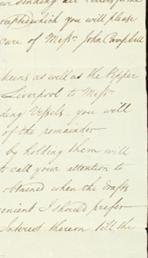 which you will please
care of Messrs. John Campbell
as well as the Pepper
Liverpool to Messrs.
Vessels, you will
of the remainder
by holding them will
call your attention to
obtained when the
I should prefer
thereon till the